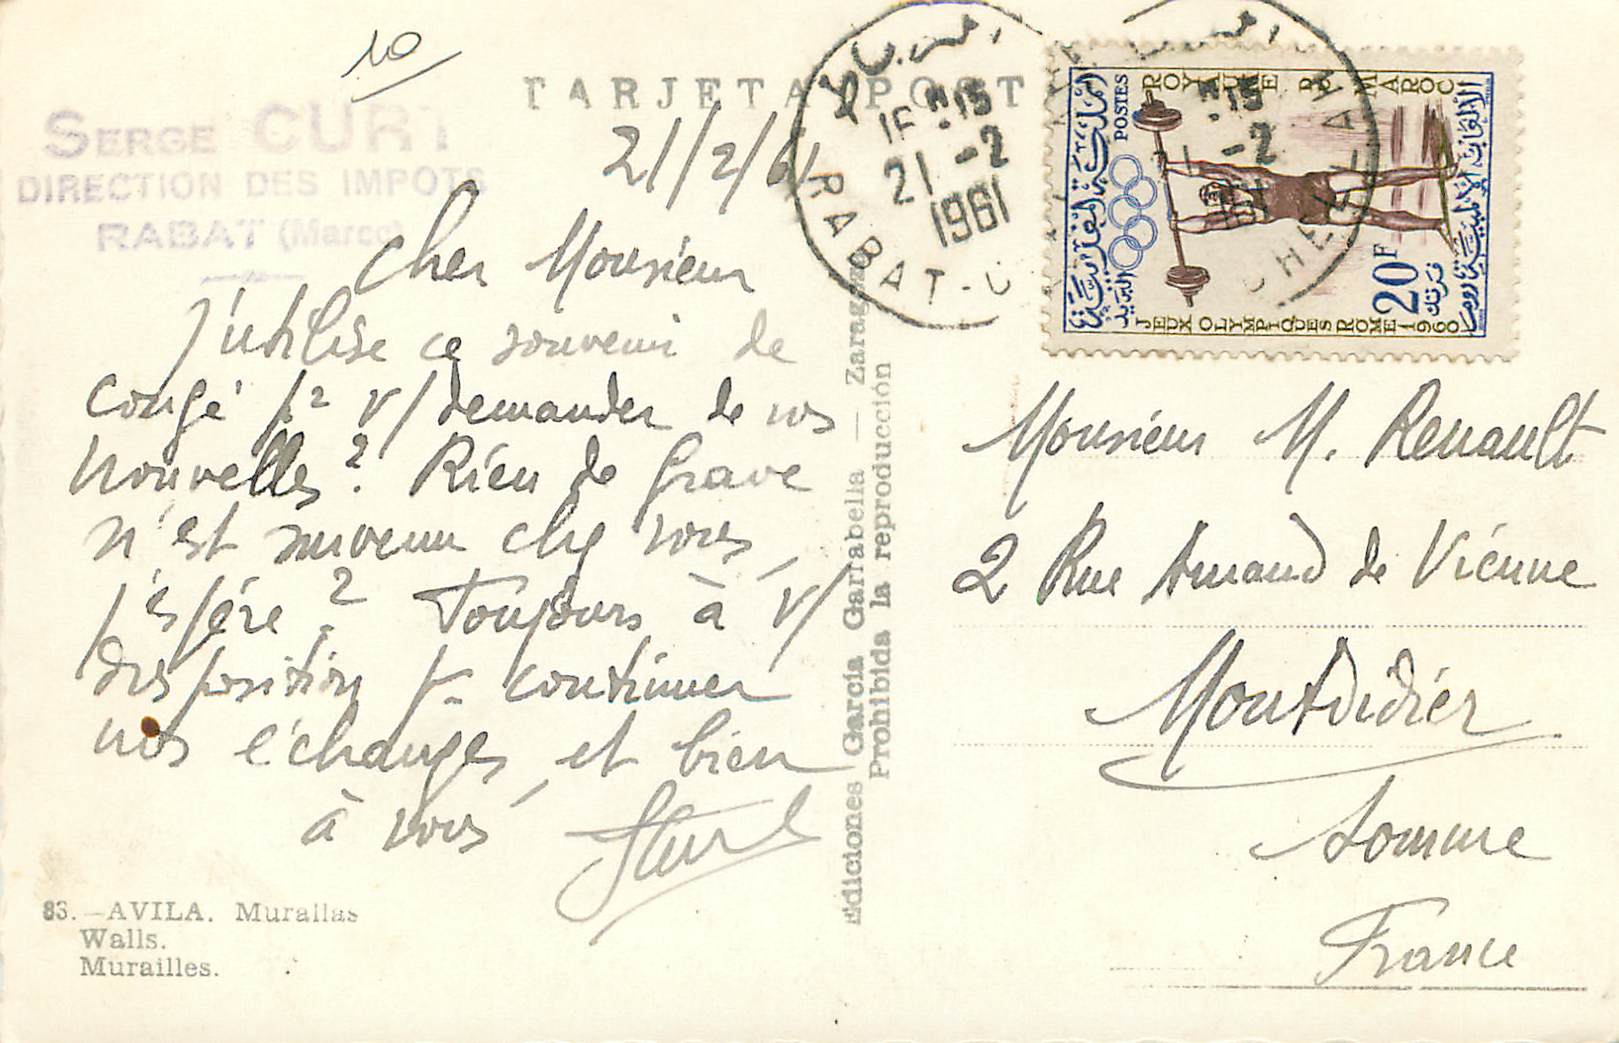 10
TARJETA POST
SERGE CURT
DIRECTION DES IMPOTS
RABAT (Maroc)
21/2/61
Cher Monsieur
J'utilise ce souvenir de
congé pr v/demander de vos
nouvelles ? Rien de grave
n'est survenu chez vous,
j'espére ? Toujours à v/
disposition pr continuer
nos échanges, et bien
à vous
SCurt
83. - AVILA. Murallas
Walls.
Murailles.
Ediciones García Garrabella - Zaragoza
Prohibida la reproducción
15
21 - 2
1961
RABAT-
CHELLAH
ROYAUME DU MAROC
POSTES
المملكة المغربية
البريد
20F
فرنك
JEUX OLYMPIQUES ROME 1960
Monsieur M. Renault
2 Rue Amand de Viénne
Montdidier
Somme
France